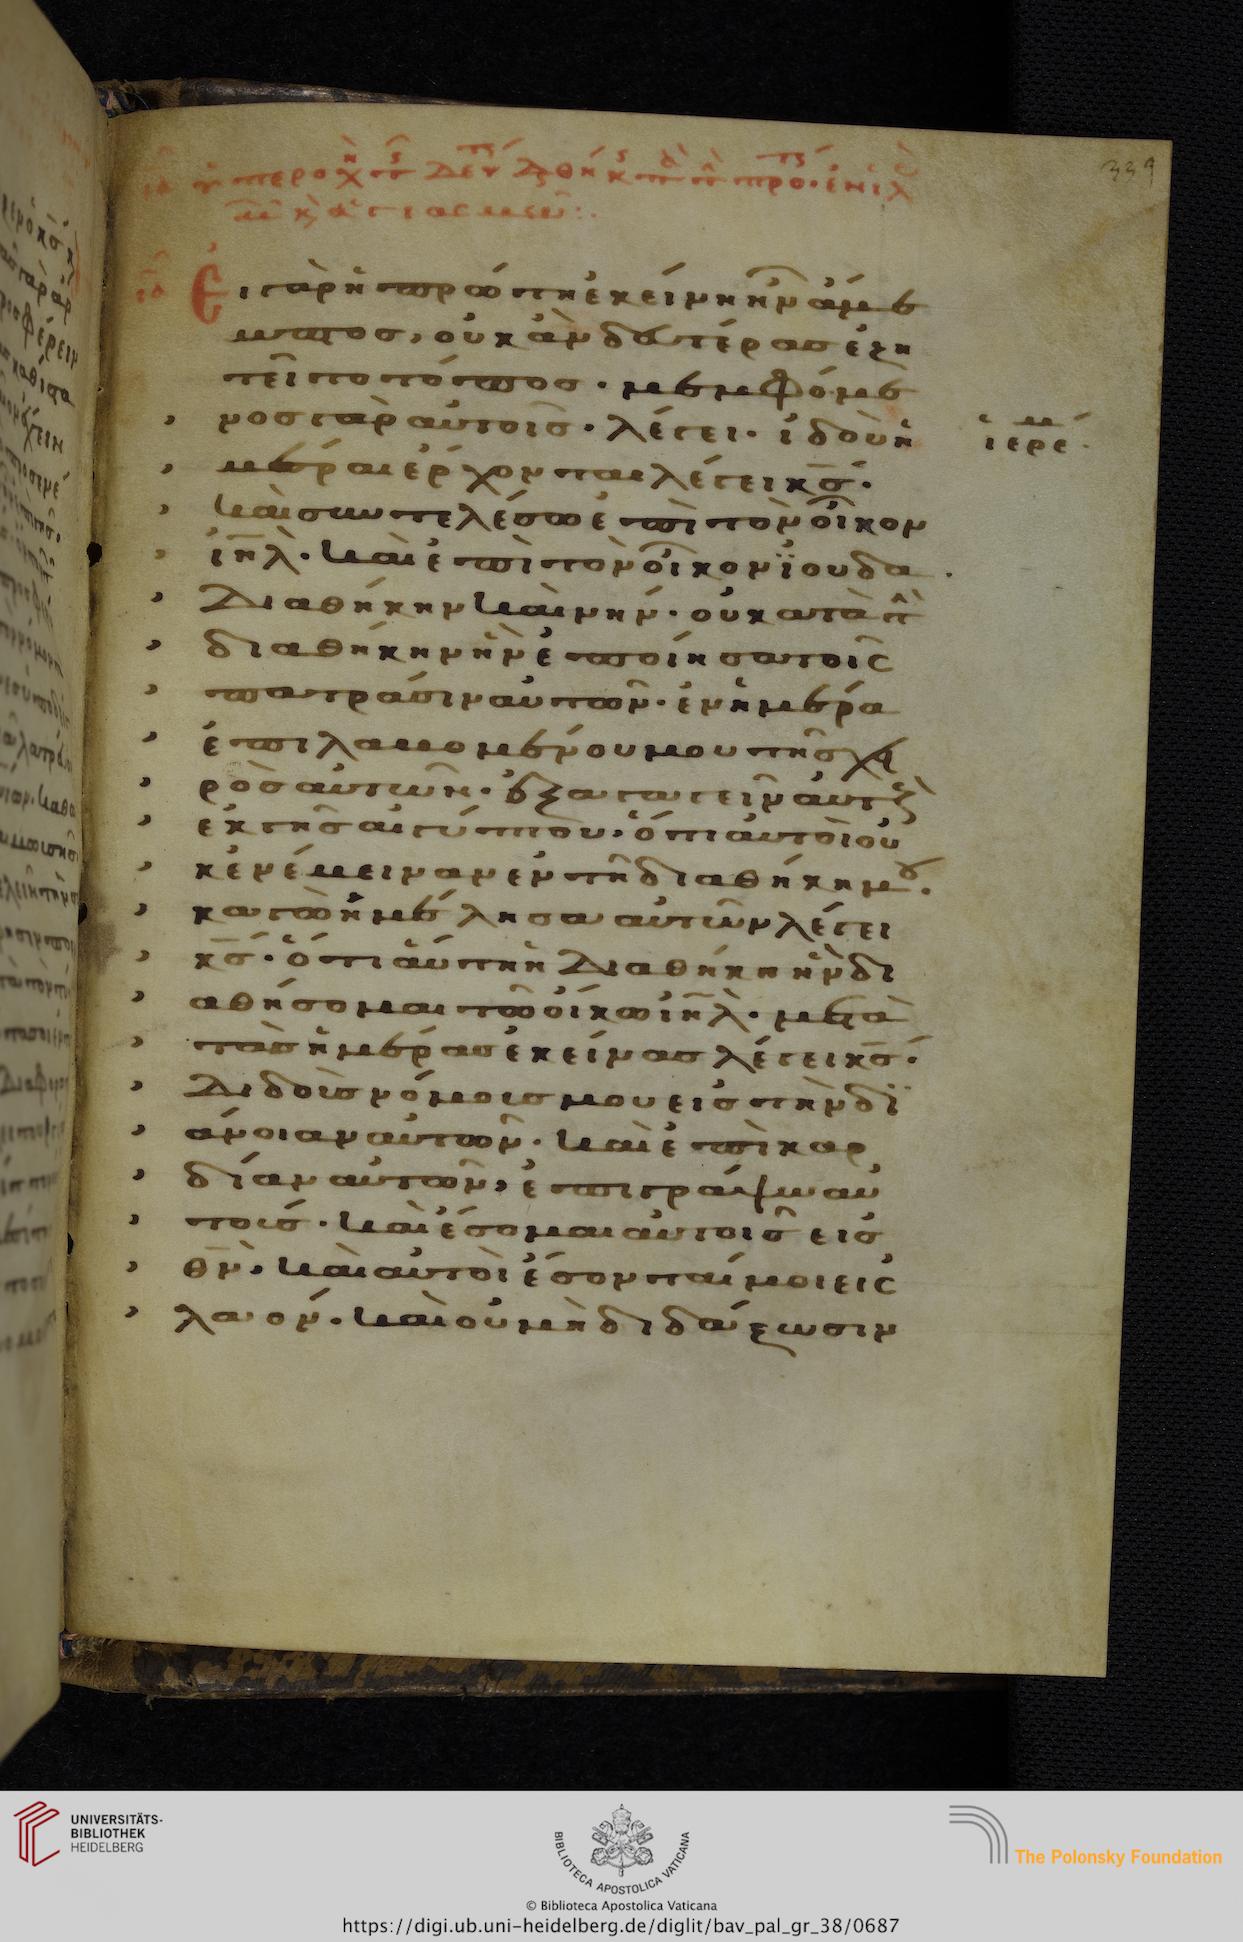 339
Εἰ γὰρ ἡ πρώτη ἐκείνη ἦν ἄμε
μπτος, οὐκ ἂν δευτέρας ἐζη
τεῖτο τόπος · μεμφόμε
νος γὰρ αὐτοῖς · λέγει · ἰδοὺ ἡ
ἱερε
μέραι ἔρχονται λέγει κς ·
καὶ συντελέσω ἐπὶ τὸν οἶκον
ιηλ · καὶ ἐπὶ τὸν οἶκον ϊουδα ·
Διαθήκην καινήν · οὐ κατὰ τὴν
διαθήκην ἣν ἐποίησα τοῖς
πατράσιν αὐτῶν · ἐν ἡμέρα
ἐπιλαβομένου μου τῆς χει
ρὸς αὐτῶν · ἐξαγαγεῖν αὐτοὺς
ἐκ γῆς αἰγύπτου · ὅτι αὐτοὶ οὐ
κ ἐνέμειναν ἐν τῆ διαθήκη μου ·
κἀγὼ ἠμέλησα αὐτῶν λέγει
κς · ὅτι αὕτη ἡ Διαθήκη ἣν δι
αθήσομαι τῶ οἴκω ιηλ · μετὰ
τὰς ἡμέρας ἐκείνας λέγει κς ·
Διδοὺς νόμους μου εἰς τὴν δϊ
άνοιαν αὐτῶν · καὶ ἐπὶ καρ
δίαν αὐτῶν, ἐπιγράψω αὐ
τούς · καὶ ἔσομαι αὐτοῖς εἰς
θν · καὶ αὐτοὶ ἔσονταί μοι εἰς
λαόν · καὶ οὐ μὴ διδάξωσιν
UNIVERSITÄTS-
BIBLIOTHEK
HEIDELBERG
BIBLIOTECA APOSTOLICA VATICANA
The Polonsky Foundation
© Biblioteca Apostolica Vaticana
https://digi.ub.uni-heidelberg.de/diglit/bav_pal_gr_38/0687